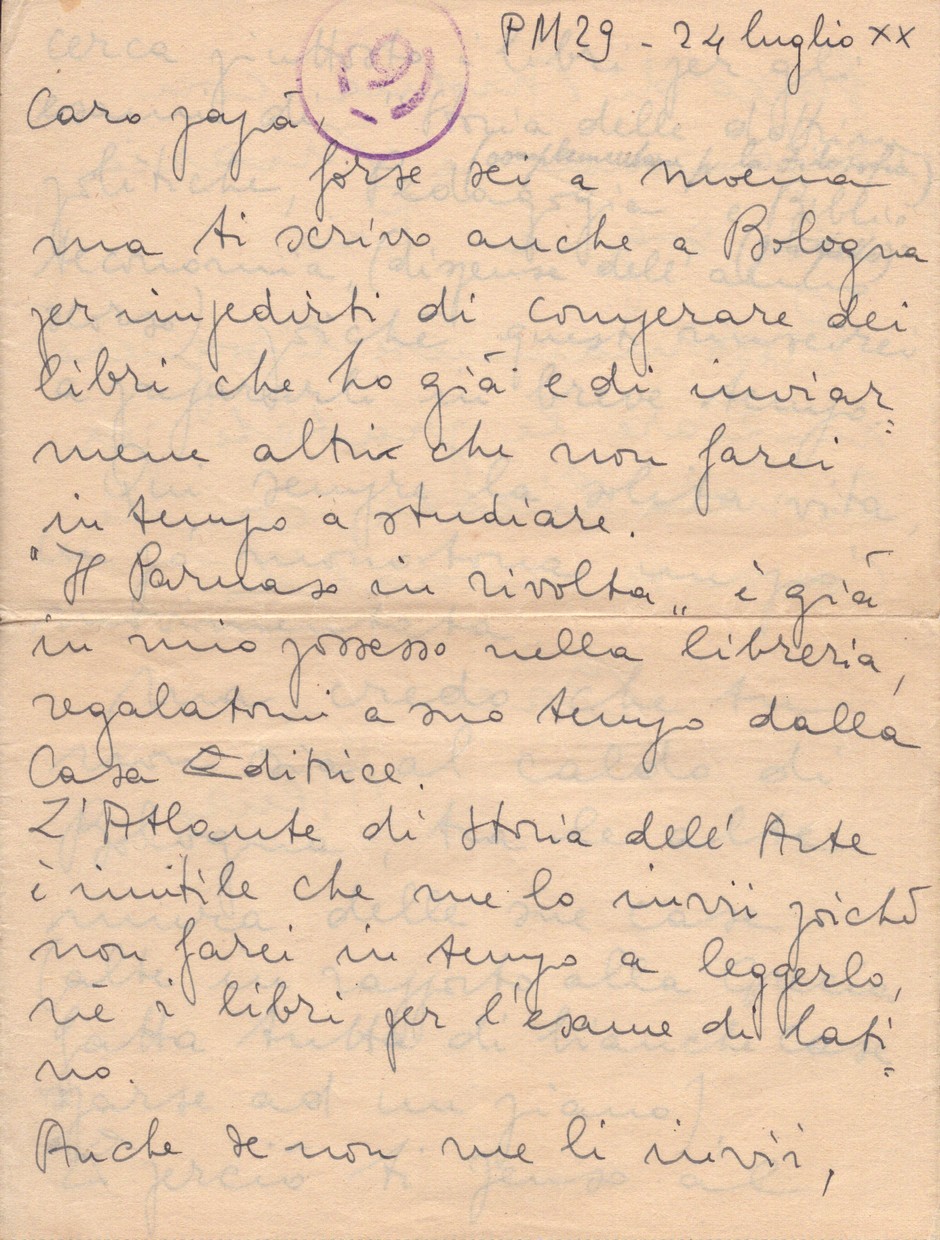 PM29 - 24 luglio XX
19
Caro papà,
forse sei a Moena
ma ti scrivo anche a Bologna
per impedirti di comperare dei
libri che ho già e di inviar=
mene altri che non farei
in tempo a studiare.
"Il Parnaso in rivolta„ è già
in mio possesso nella libreria,
regalatomi a suo tempo dalla
Casa Editrice.
L'Atlante di Storia dell'Arte
è inutile che me lo invii poichè
non farei in tempo a leggerlo,
nè i libri per l'esame di lati=
no.
Anche se non me li invii,